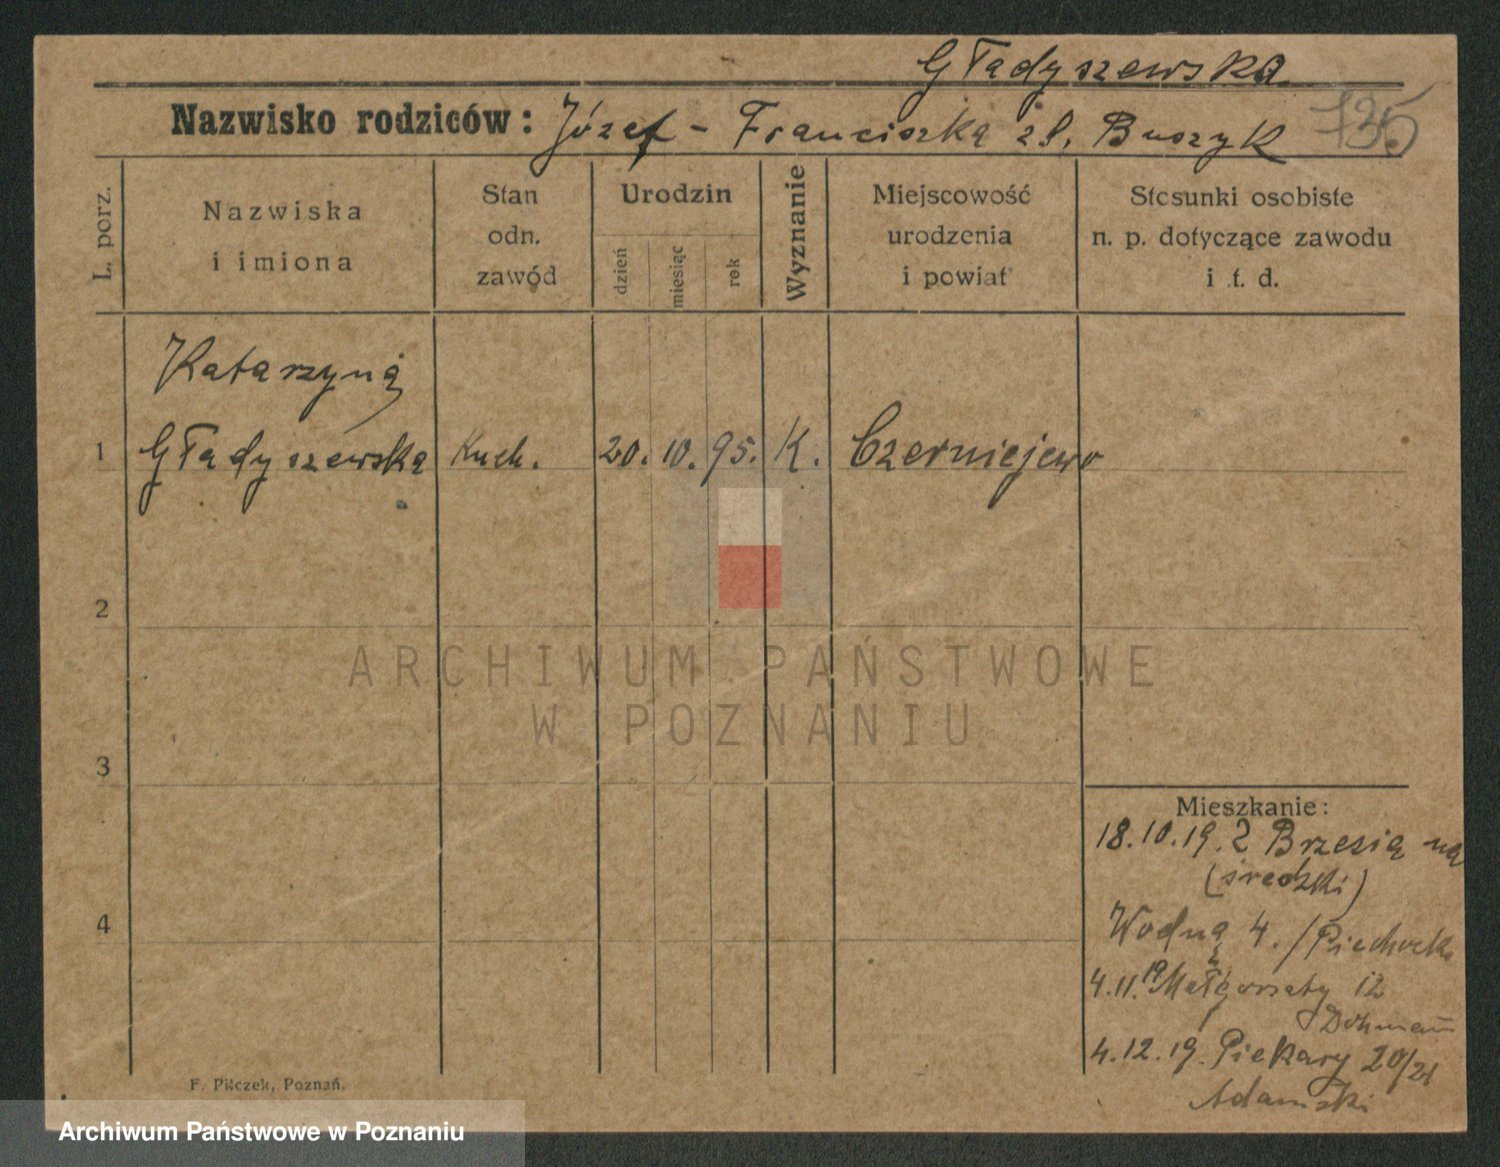 Gładyszewska
Nazwisko rodziców: Józef - Franciszka Buszyk 735
L. porz.
Nazwiska
i imiona
Stan
odn.
zawód
Urodzin
dzień
miesiąc
rok
Wyznanie
Miejscowość
urodzenia
i powiat
Stosunki osobiste
n. p. dotyczące zawodu
i t. d.
Katarzyna
1 Gładyszewska Kuch. 20. 10. 95. K. Czerniejewo
2
ARCHIWUM PAŃSTWOWE
W POZNANIU
3
Mieszkanie:
18.10.19. z Brzesia
(średzki)
4
Wodna 4. /
4.11.19 Małgorzaty 12
4.12.19. Piekary 20/21
Adamski
F. Pilczek, Poznań.
Archiwum Państwowe w Poznaniu